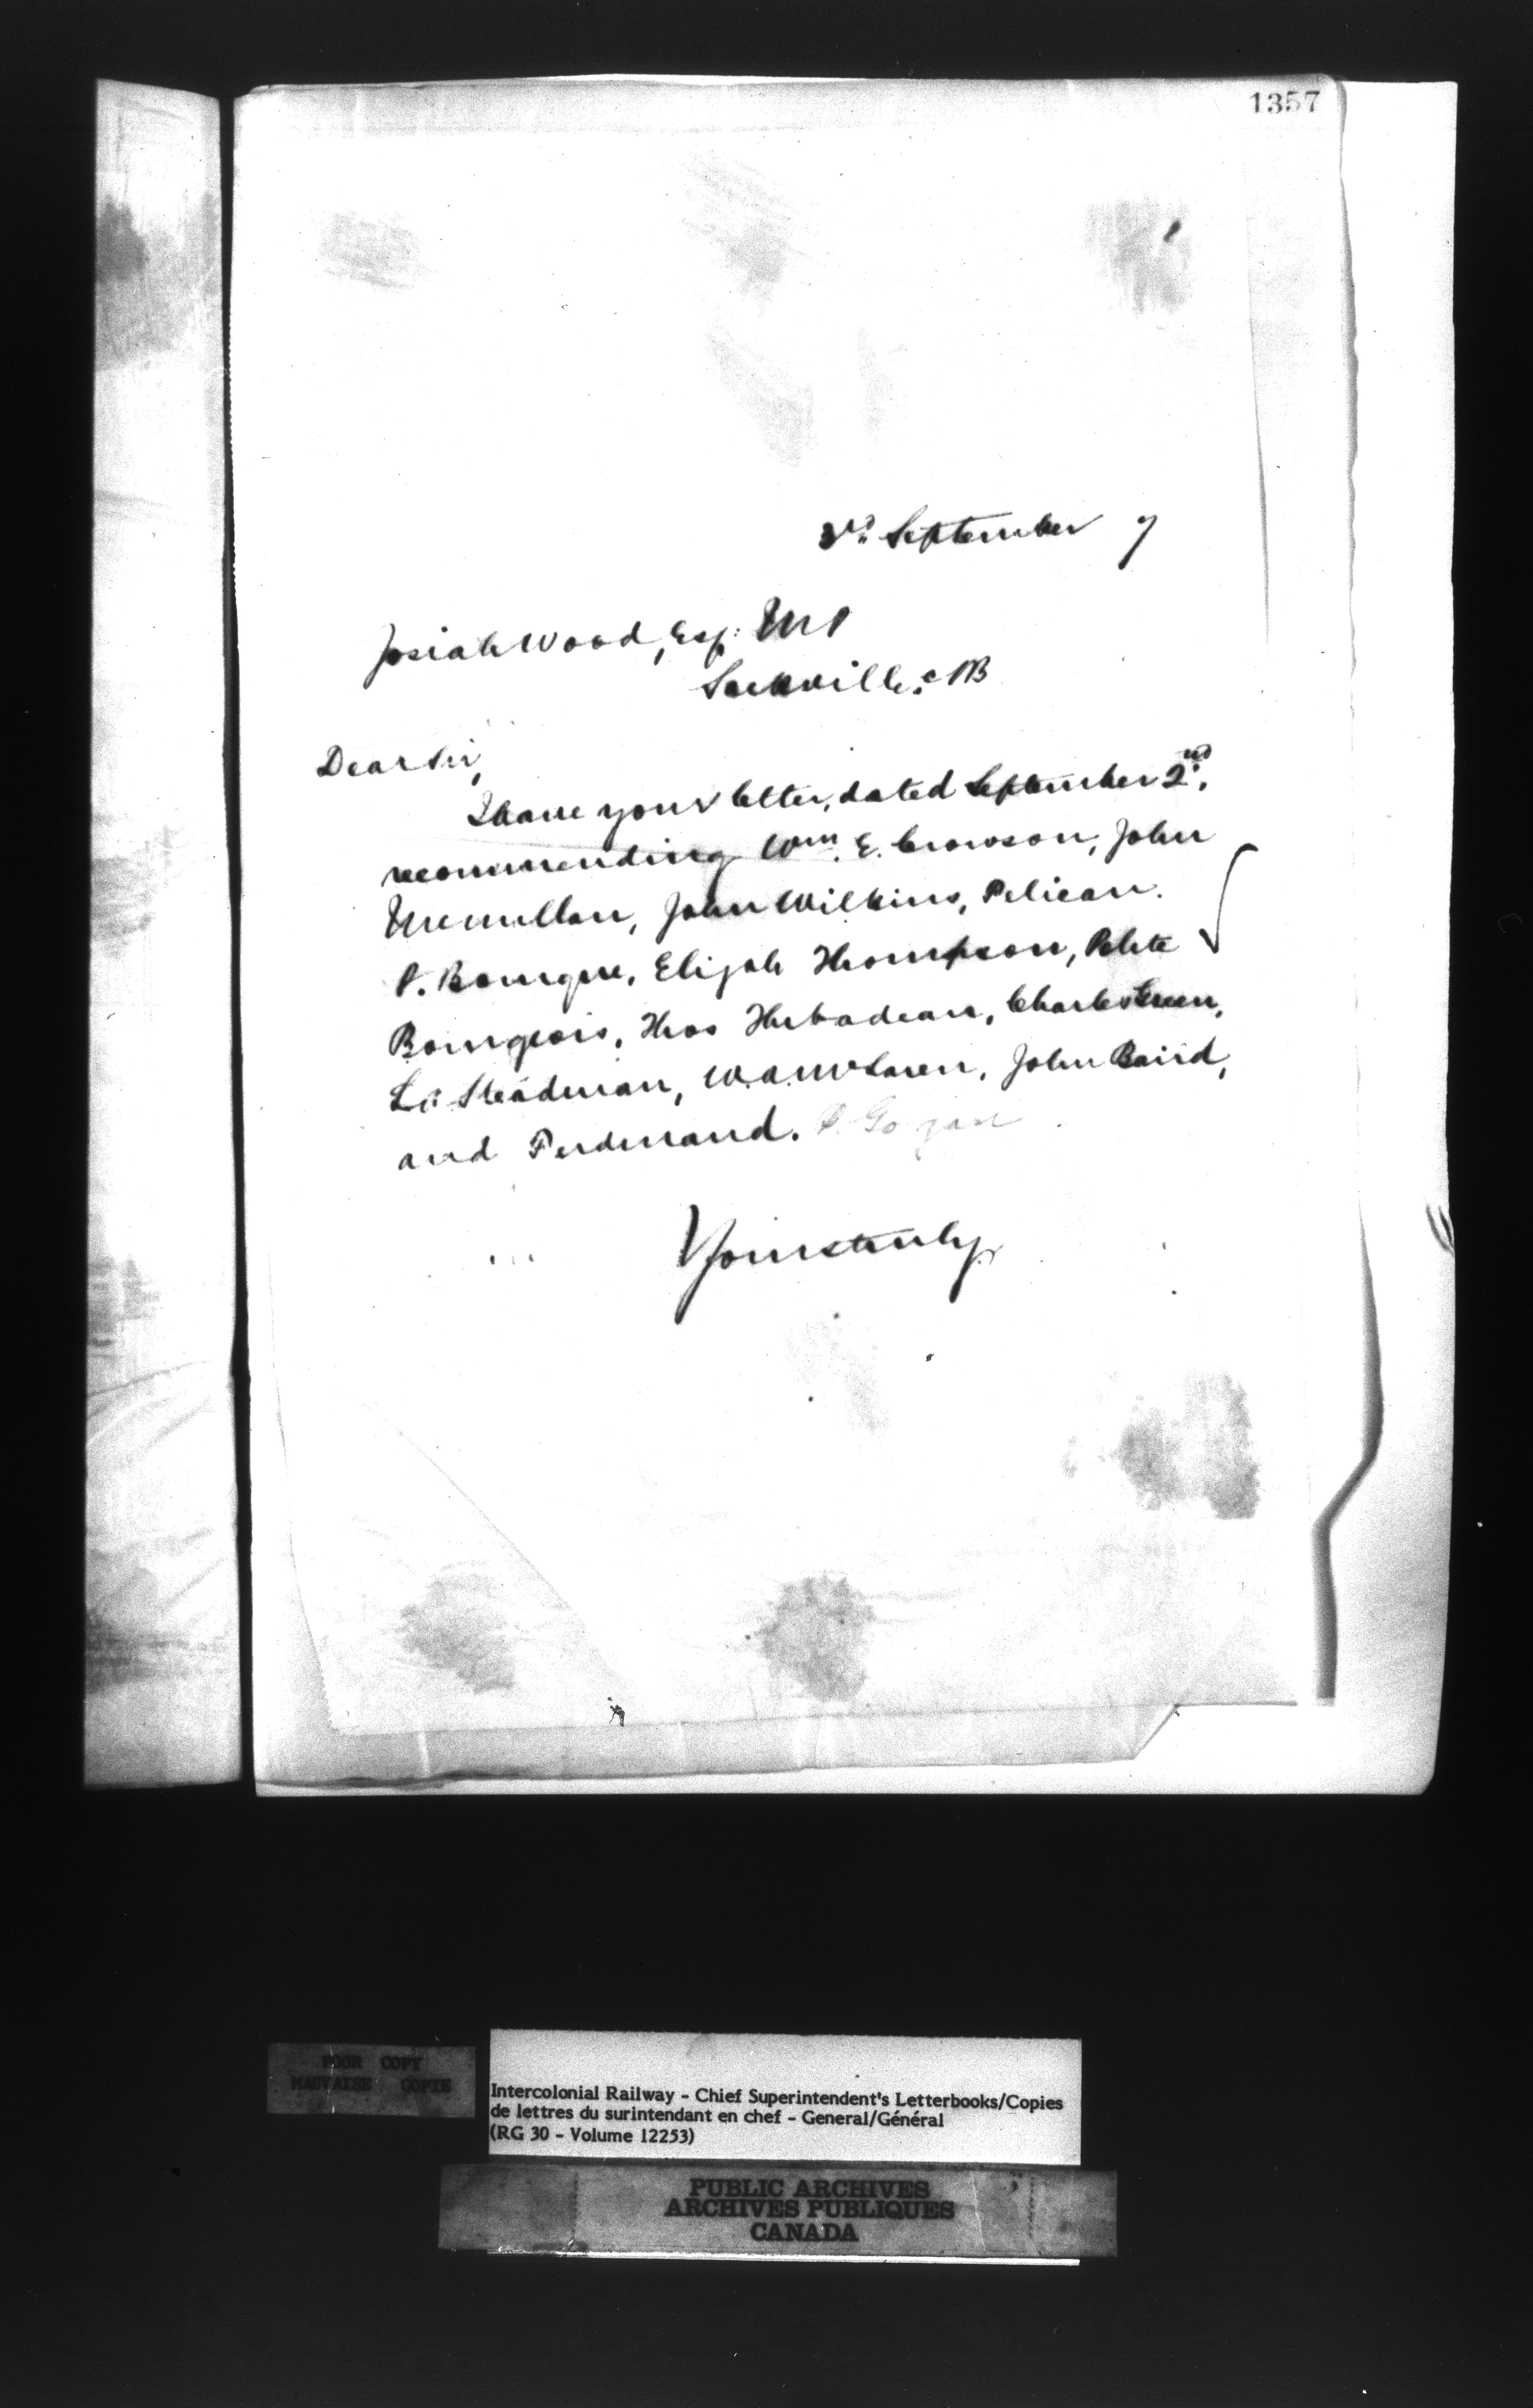 1357
3rd. September 7
Josiah Wood, Esq: MP
Sackville, NB
Dear Sir,
I have your letter, dated September 2nd.
recommending Wm. E. Crowson, John
McMillan, John Wilkins, Pelican.
P. Bourque, Elijah Thompson,
Bourgeois, Thos Thibadeau, Charles Green,
Steadman, W.A. McLaren, John Baird,
and Ferdinand.
Yours truly,
POOR COPY
MAUVAISE COPIE
Intercolonial Railway - Chief Superintendent's Letterbooks/Copies
de lettres du surintendant en chef - General/Général
(RG 30 - Volume 12253)
PUBLIC ARCHIVES
ARCHIVES PUBLIQUES
CANADA